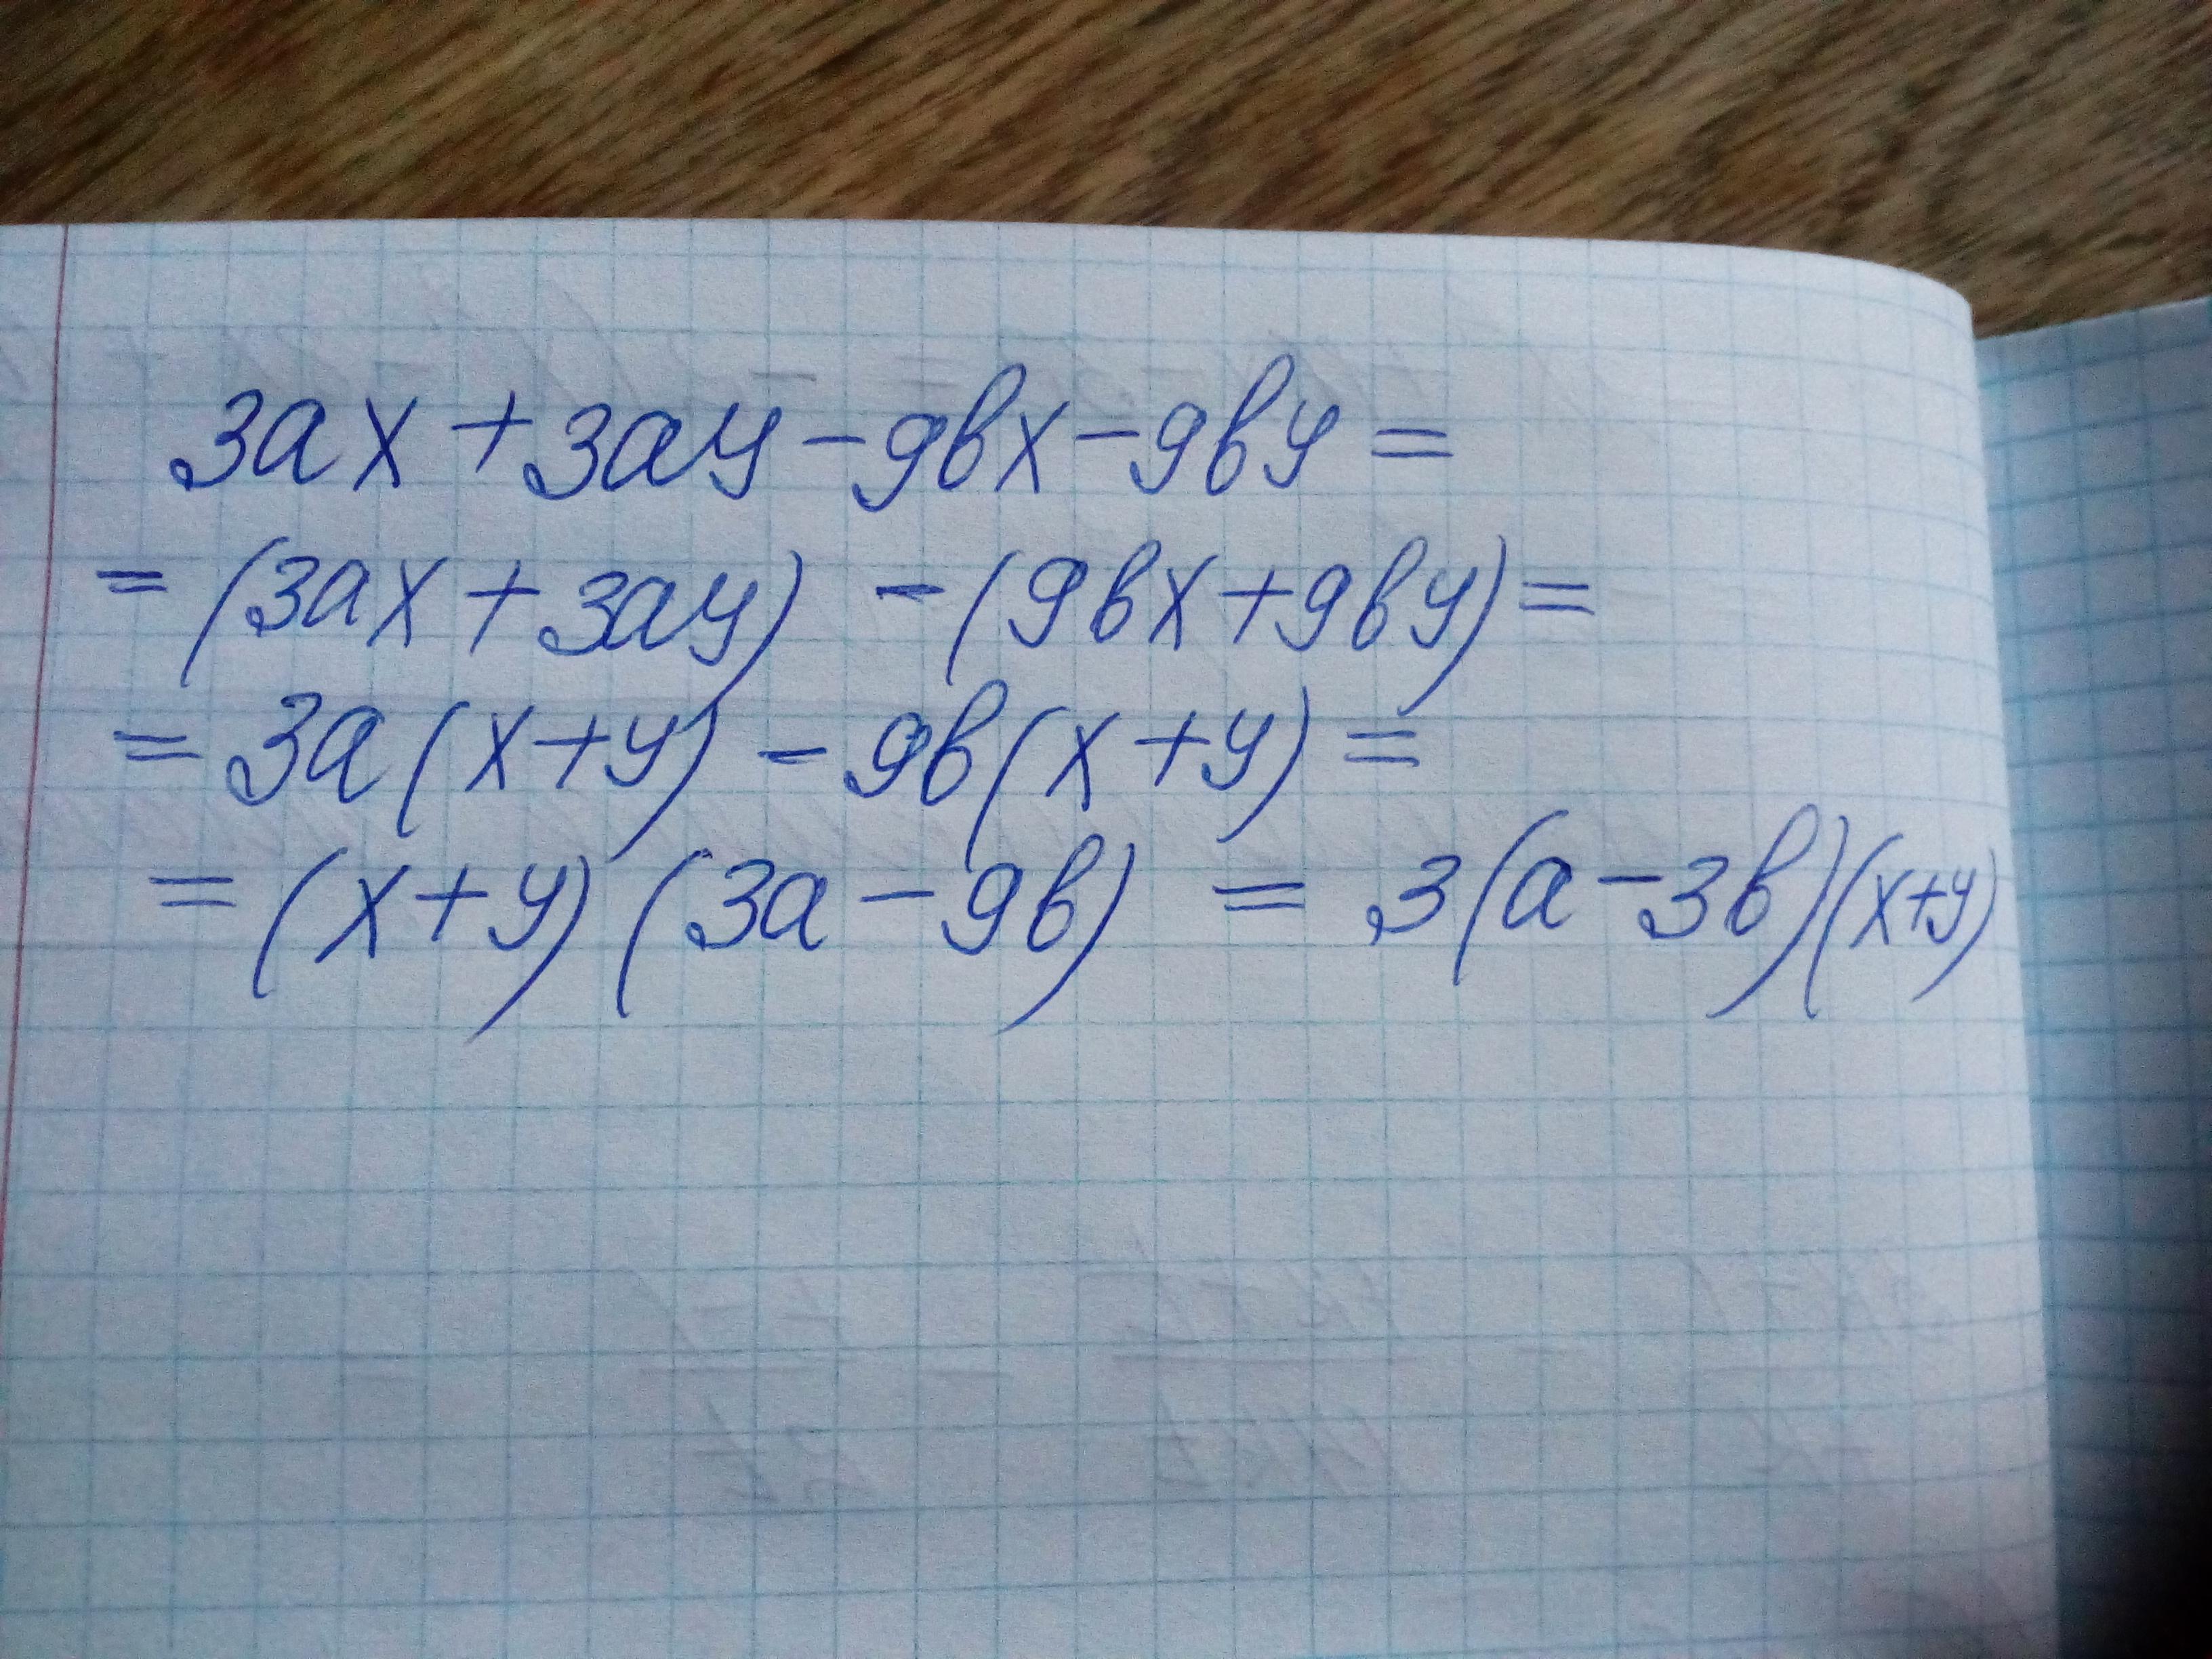 3ax + 3ay - 9bx - 9by =
= (3ax + 3ay) - (9bx + 9by) =
= 3a(x+y) - 9b(x+y) =
= (x+y)(3a - 9b) = 3(a - 3b)(x+y)